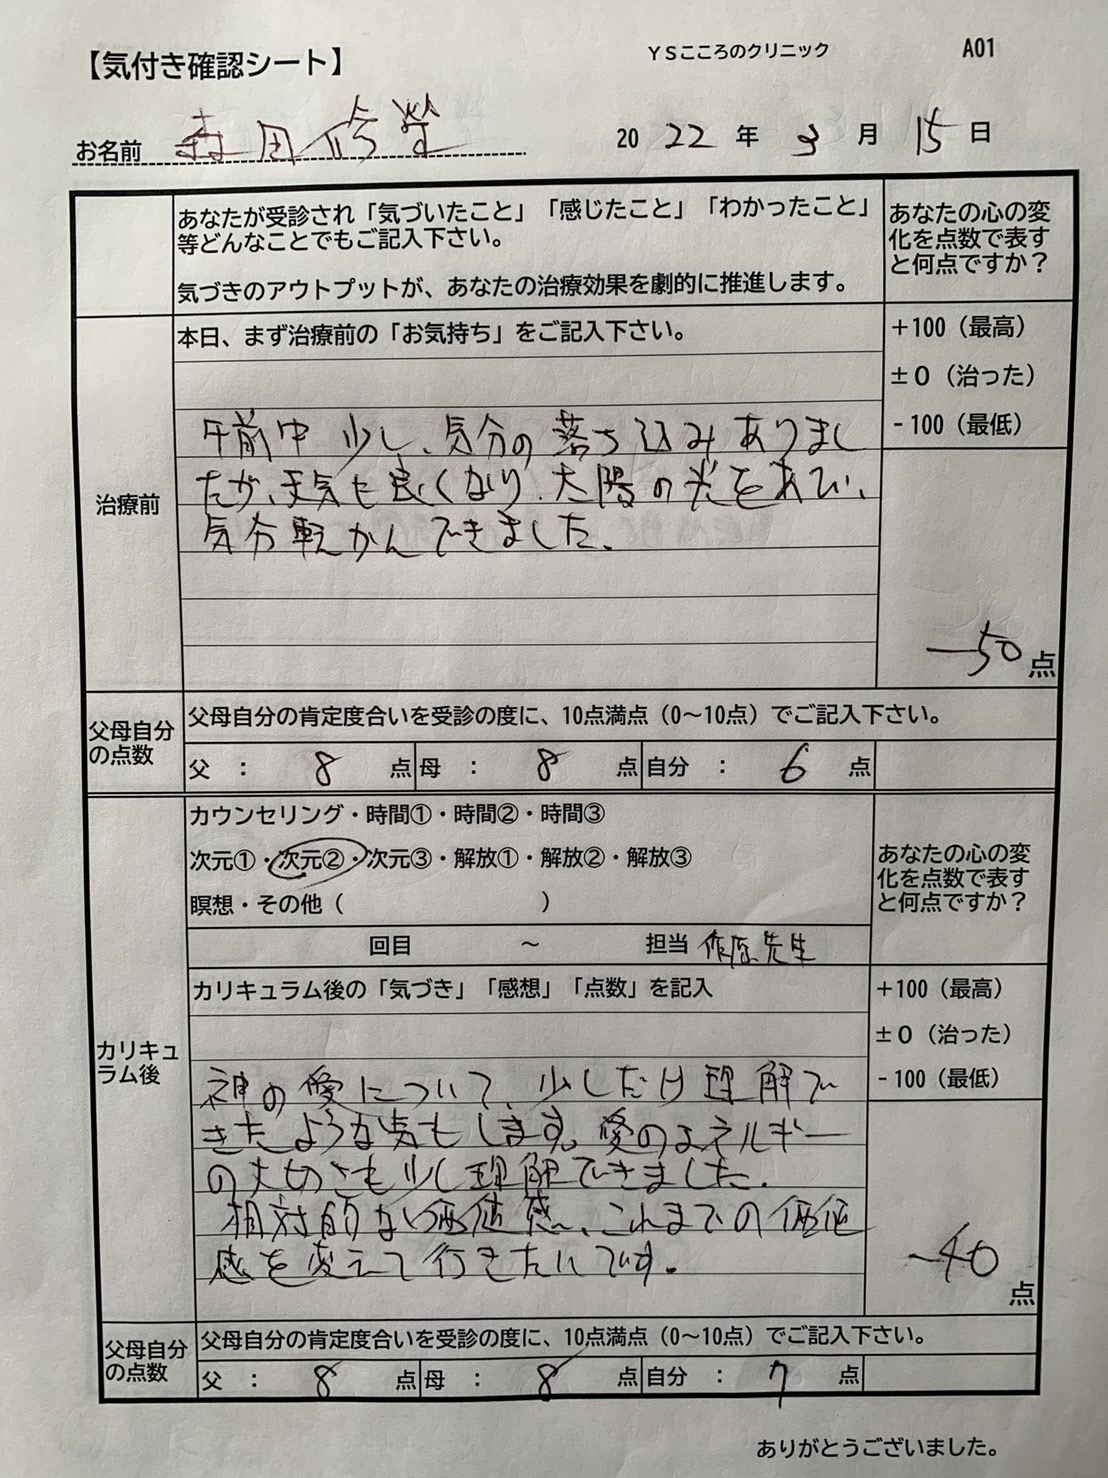 【気付き確認シート】 YSこころのクリニック A01
お名前 森田修 2022年3月15日
あなたが受診され「気づいたこと」「感じたこと」「わかったこと」
等どんなことでもご記入下さい。
気づきのアウトプットが、あなたの治療効果を劇的に推進します。
あなたの心の変
化を点数で表す
と何点ですか？
治療前
本日、まず治療前の「お気持ち」をご記入下さい。
午前中 少し、気分の落ち込みありまし
たが、天気も良くなり、太陽の光をあび、
気分転かんできました。
+100（最高）
±0（治った）
-100（最低）
-50点
父母自分
の点数
父母自分の肯定度合いを受診の度に、10点満点（0～10点）でご記入下さい。
父 ： 8 点 母 ： 8 点 自分 ： 6 点
カリキュ
ラム後
カウンセリング・時間①・時間②・時間③
次元①・次元②・次元③・解放①・解放②・解放③
瞑想・その他（ ）
回目 ～ 担当 作原先生
あなたの心の変
化を点数で表す
と何点ですか？
カリキュラム後の「気づき」「感想」「点数」を記入
神の愛について、少しだけ理解で
きたような気もします。愛のエネルギー
の大切さも少し理解できました。
相対的な価値感、これまでの価値
感を変えて行きたいです。
+100（最高）
±0（治った）
-100（最低）
-40点
父母自分
の点数
父母自分の肯定度合いを受診の度に、10点満点（0～10点）でご記入下さい。
父 ： 8 点 母 ： 8 点 自分 ： 7 点
ありがとうございました。